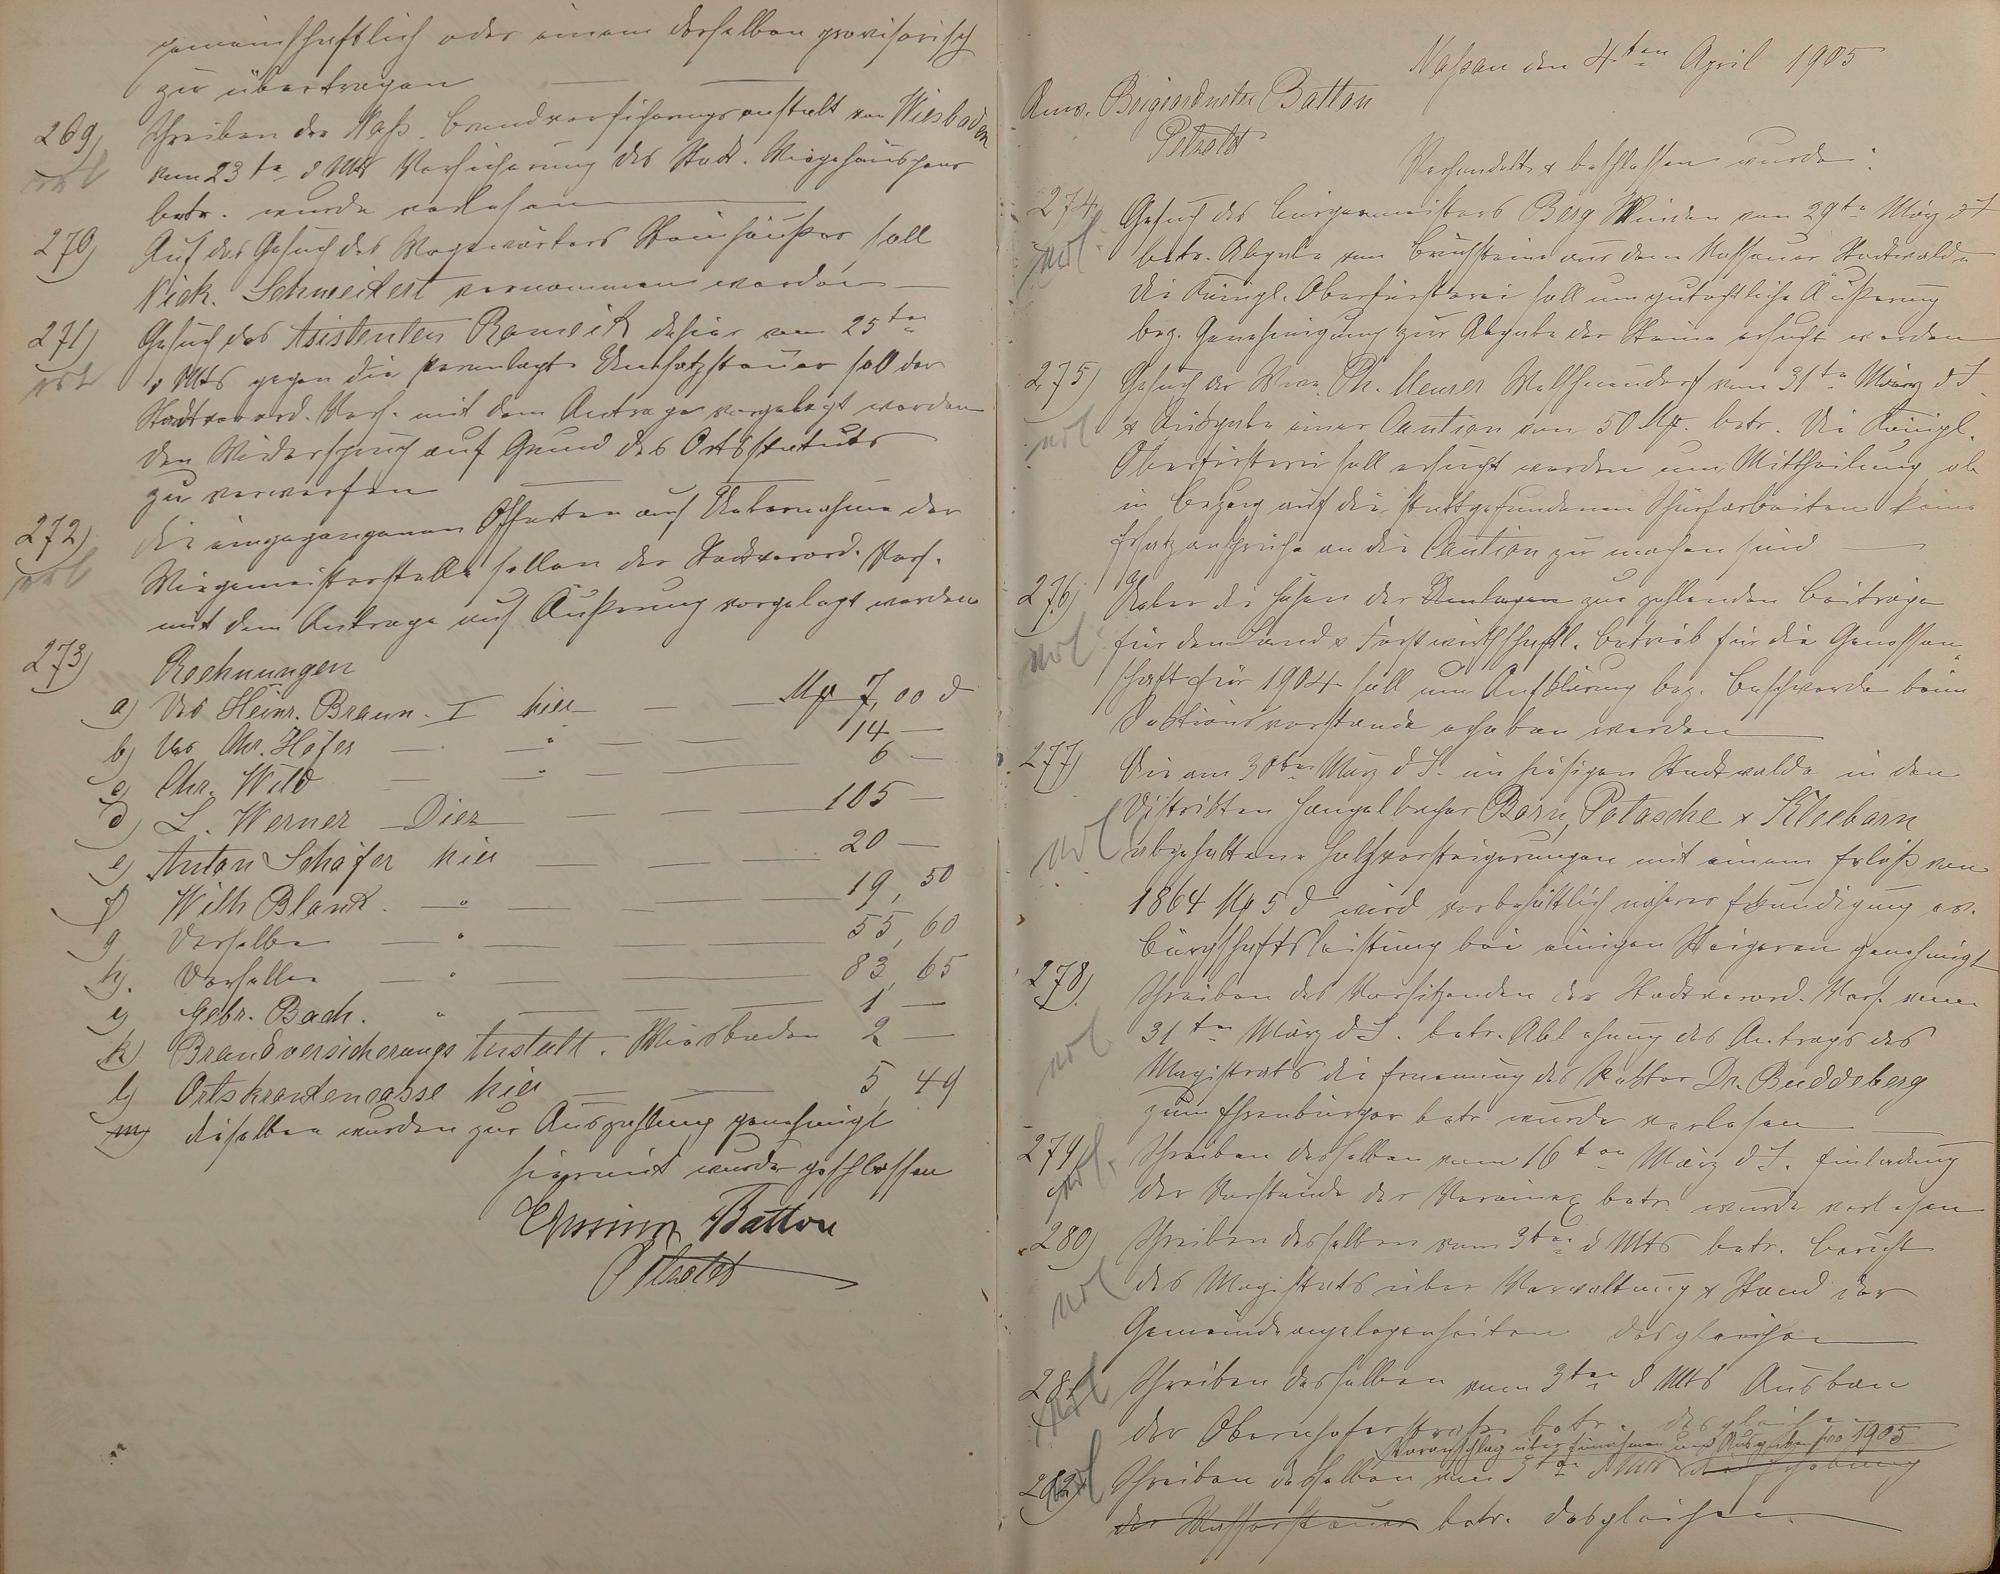 gemeinschaftlich oder einem derselben provisorisch
zu übertragen
269) Schreiben der Nass. Brandversicherungsanstalt von Wiesbaden
vom 23ten d Mts Versicherung des Städt. Wiegehäuschens
betr. wurde verlesen
270) Auf das Gesuch des Wegewärters Steinhäußer soll
Nick. Schweikert vernommen werden
271) Gesuch des Asistenten Rameik dahier vom 25ten
v Mts gegen die veranlagte Umsatzsteuer soll der
Stadtverord. Vers. mit dem Antrage vorgelegt werden
den Widerspruch auf Grund des Ortsstatuts
zu verwerfen
272) Die eingegangenen Offerten auf Uebernahme der
Wiegemeisterstelle sollen der Stadtverord. Vers.
mit dem Antrage auf Äußerung vorgelegt werden
273) Rechnungen
a) Des Heinr. Braun I hier Mp 7,00 d
b) Des Chr. Höfer " 14 —
c) Chr. Wild " 6 —
d) L. Werner Diez 105 —
e) Anton Schäfer hier 20 —
f) Wilh Blank " 19,50
g Derselbe " 55,60
h). Derselbe " 83,65
i) Gebr. Bach. " 1 —
k) Brandversicherungs Anstalt. Wiesbaden 2 —
l) Ortskrankencasse hier 5,49
m) dieselben wurden zur Auszahlung genehmigt
hiermit wurde geschlossen
Batton
Petzoldt
Nassau den 4ten April 1905
Anw. Beigeordneter Batton
Petzoldt
Verhandelt & beschlossen wurde:
274 Gesuch des Bürgermeisters Berg Winden vom 29ten März d J
betr. Abgabe von Bruchsteine aus dem Nassauer Stadtwalde
die Königl. Oberförsterei soll um gutachtliche Äußerung
bez. Genehmigung zur Abgabe der Steine ersucht werden
275) Gesuch der Wwe. Ph. Meurer vom 31ten März d J
& Rückgabe einer Caution von 50 Mp. betr. Die Königl.
Oberförsterei soll ersucht werden um Mittheilung ob
in bezug auf die stattgefundenen Schürfarbeiten keine
Ersatzansprüche an die Caution zu machen sind
276) Ueber die Höhen der Umlagen zur zahlenden Beiträge
für den Land & Forstwirthschaftl. Betrieb für die Genossen
schaft für 1904 soll um Aufklärung bez. Beschwerde beim
Sektionsvorstande erhoben werden
277) Die am 30ten März d J. im hiesigen Stadtwalde in den
Distrikten Hengelbacher Born, Potasche & Kleeborn
abgehaltene Holzversteigerungen mit einem Erlöß von
1864 Mp 5 d wird vorbehältlich näherer Erkundigung ev.
Bürgschaftsleistung bei einigen Steigeren genehmigt
278) Schreiben des Vorsitzenden der Stadtverord. Vers. vom
31ten März d J. betr. Ablehnung des Antrags des
Magistrats die Ernennung des Rektor Dr. Buddeberg
zum Ehrenbürger betr wurde verlesen
279 Schreiben desselben vom 16ten März d J. Einladung
der Vorstände der Vereine betr. wurde verlesen
280) Schreiben desselben vom 3ten d Mts betr. Bericht
des Magistrats über Verwaltung & Stand der
Gemeindeangelegenheiten desgleichen
281 Schreiben desselben vom 3ten d Mts Ausbau
der Obernhoferstraße betr. desgleichen
Voranschlag über Einnahmen und Ausgaben pro 1905
282) Schreiben desselben vom 3ten d Mts
der Wassersteuer betr. desgleichen.